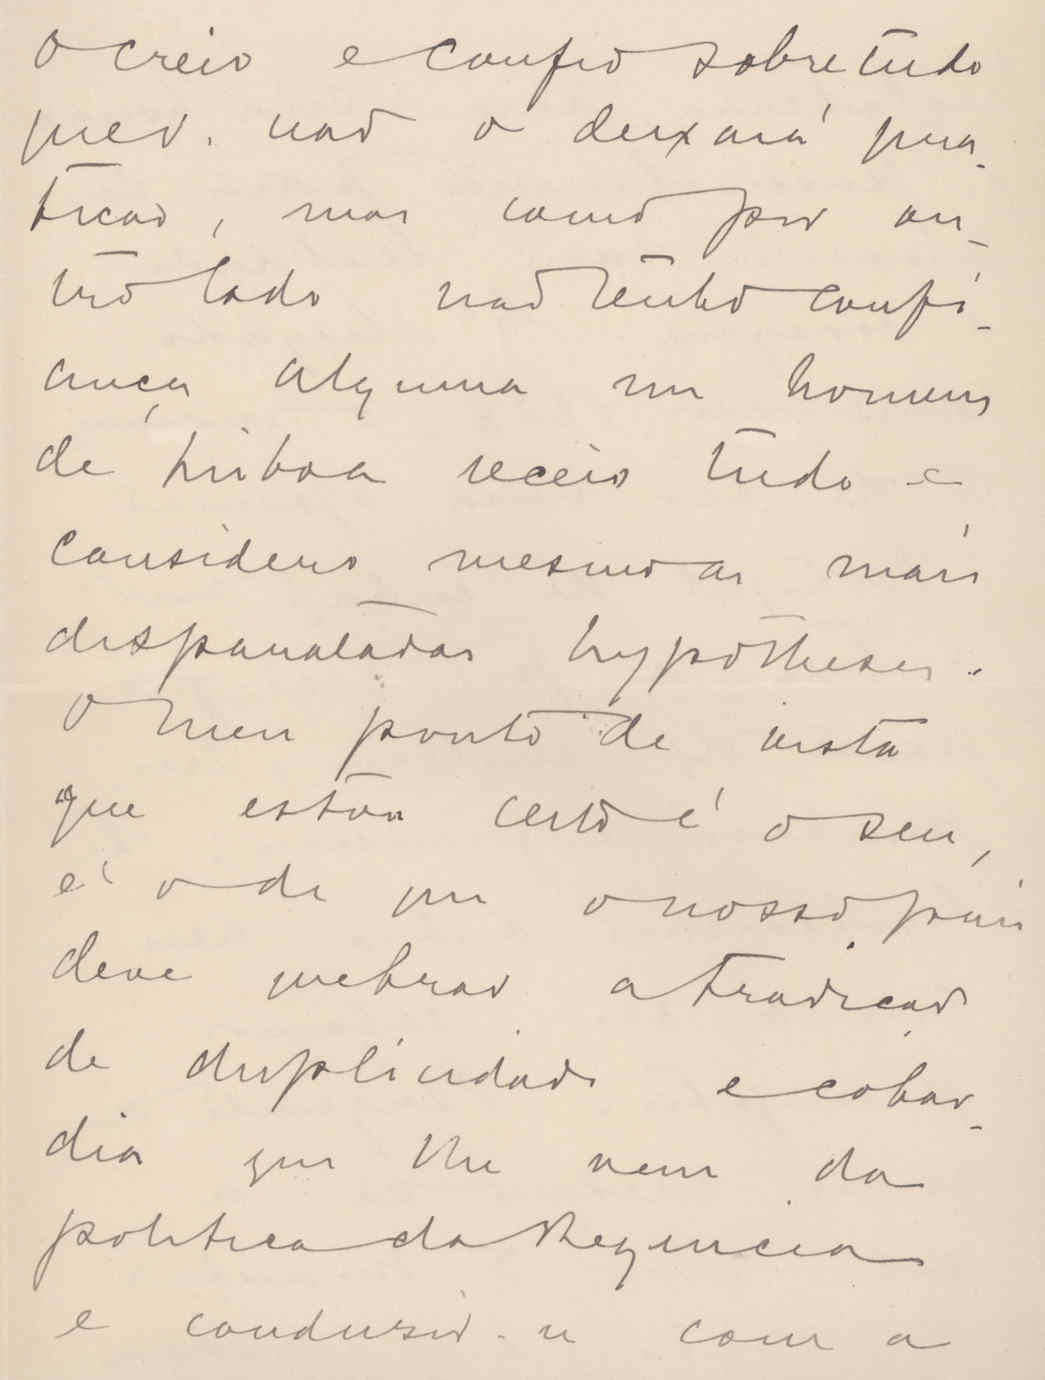 o creio e confio sobretudo
que v. não o deixará pra-
ticar, mas como por ou-
tro lado não tenho confi-
ança alguma nos homens
de Lisboa receio tudo e
considero mesmo as mais
disparatadas hypotheses.
O meu ponto de vista
que estou certo é o seu,
é o de que o nosso pais
deve quebrar a tradição
de duplicidade e cobar-
dia que lhe vem da
politica da Regencia
e conduzir-se com a